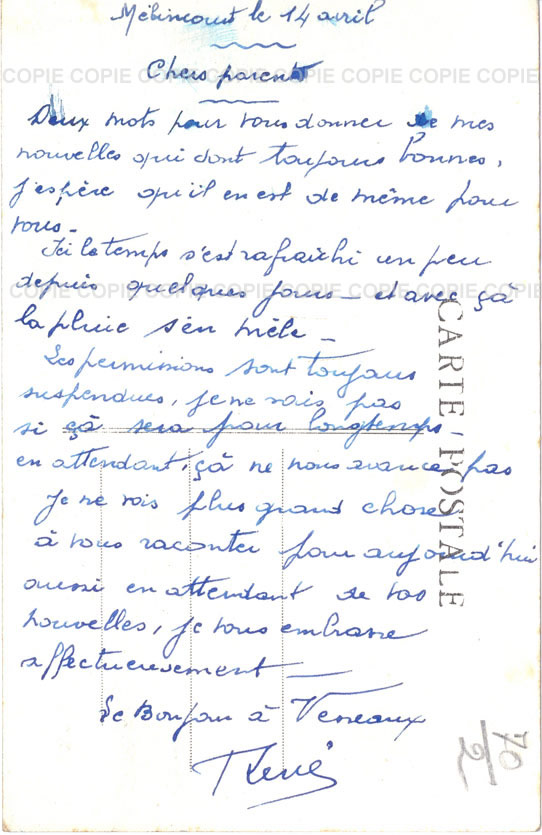 Mélincourt le 14 avril
Chers parents
COPIE COPIE COPIE COPIE COPIE COPIE COPIE COPIE
Deux mots pour vous donner de mes
nouvelles qui sont toujours bonnes,
j'espère qu'il en est de même pour
vous -
Ici le temps s'est rafraîchi un peu
depuis quelques jours - et avec çà
COPIE COPIE COPIE COPIE COPIE COPIE COPIE COPIE
la pluie s'en mêle -
Les permissions sont toujours
suspendues, je ne vois pas
si çà sera pour longtemps -
en attendant, çà ne nous avance pas
Je ne vois plus grand chose
à vous raconter pour aujourd'hui
aussi en attendant de vos
nouvelles, je vous embrasse
affectueusement -
Le Bonjour à Vesneaux
René
CARTE POSTALE
70/2